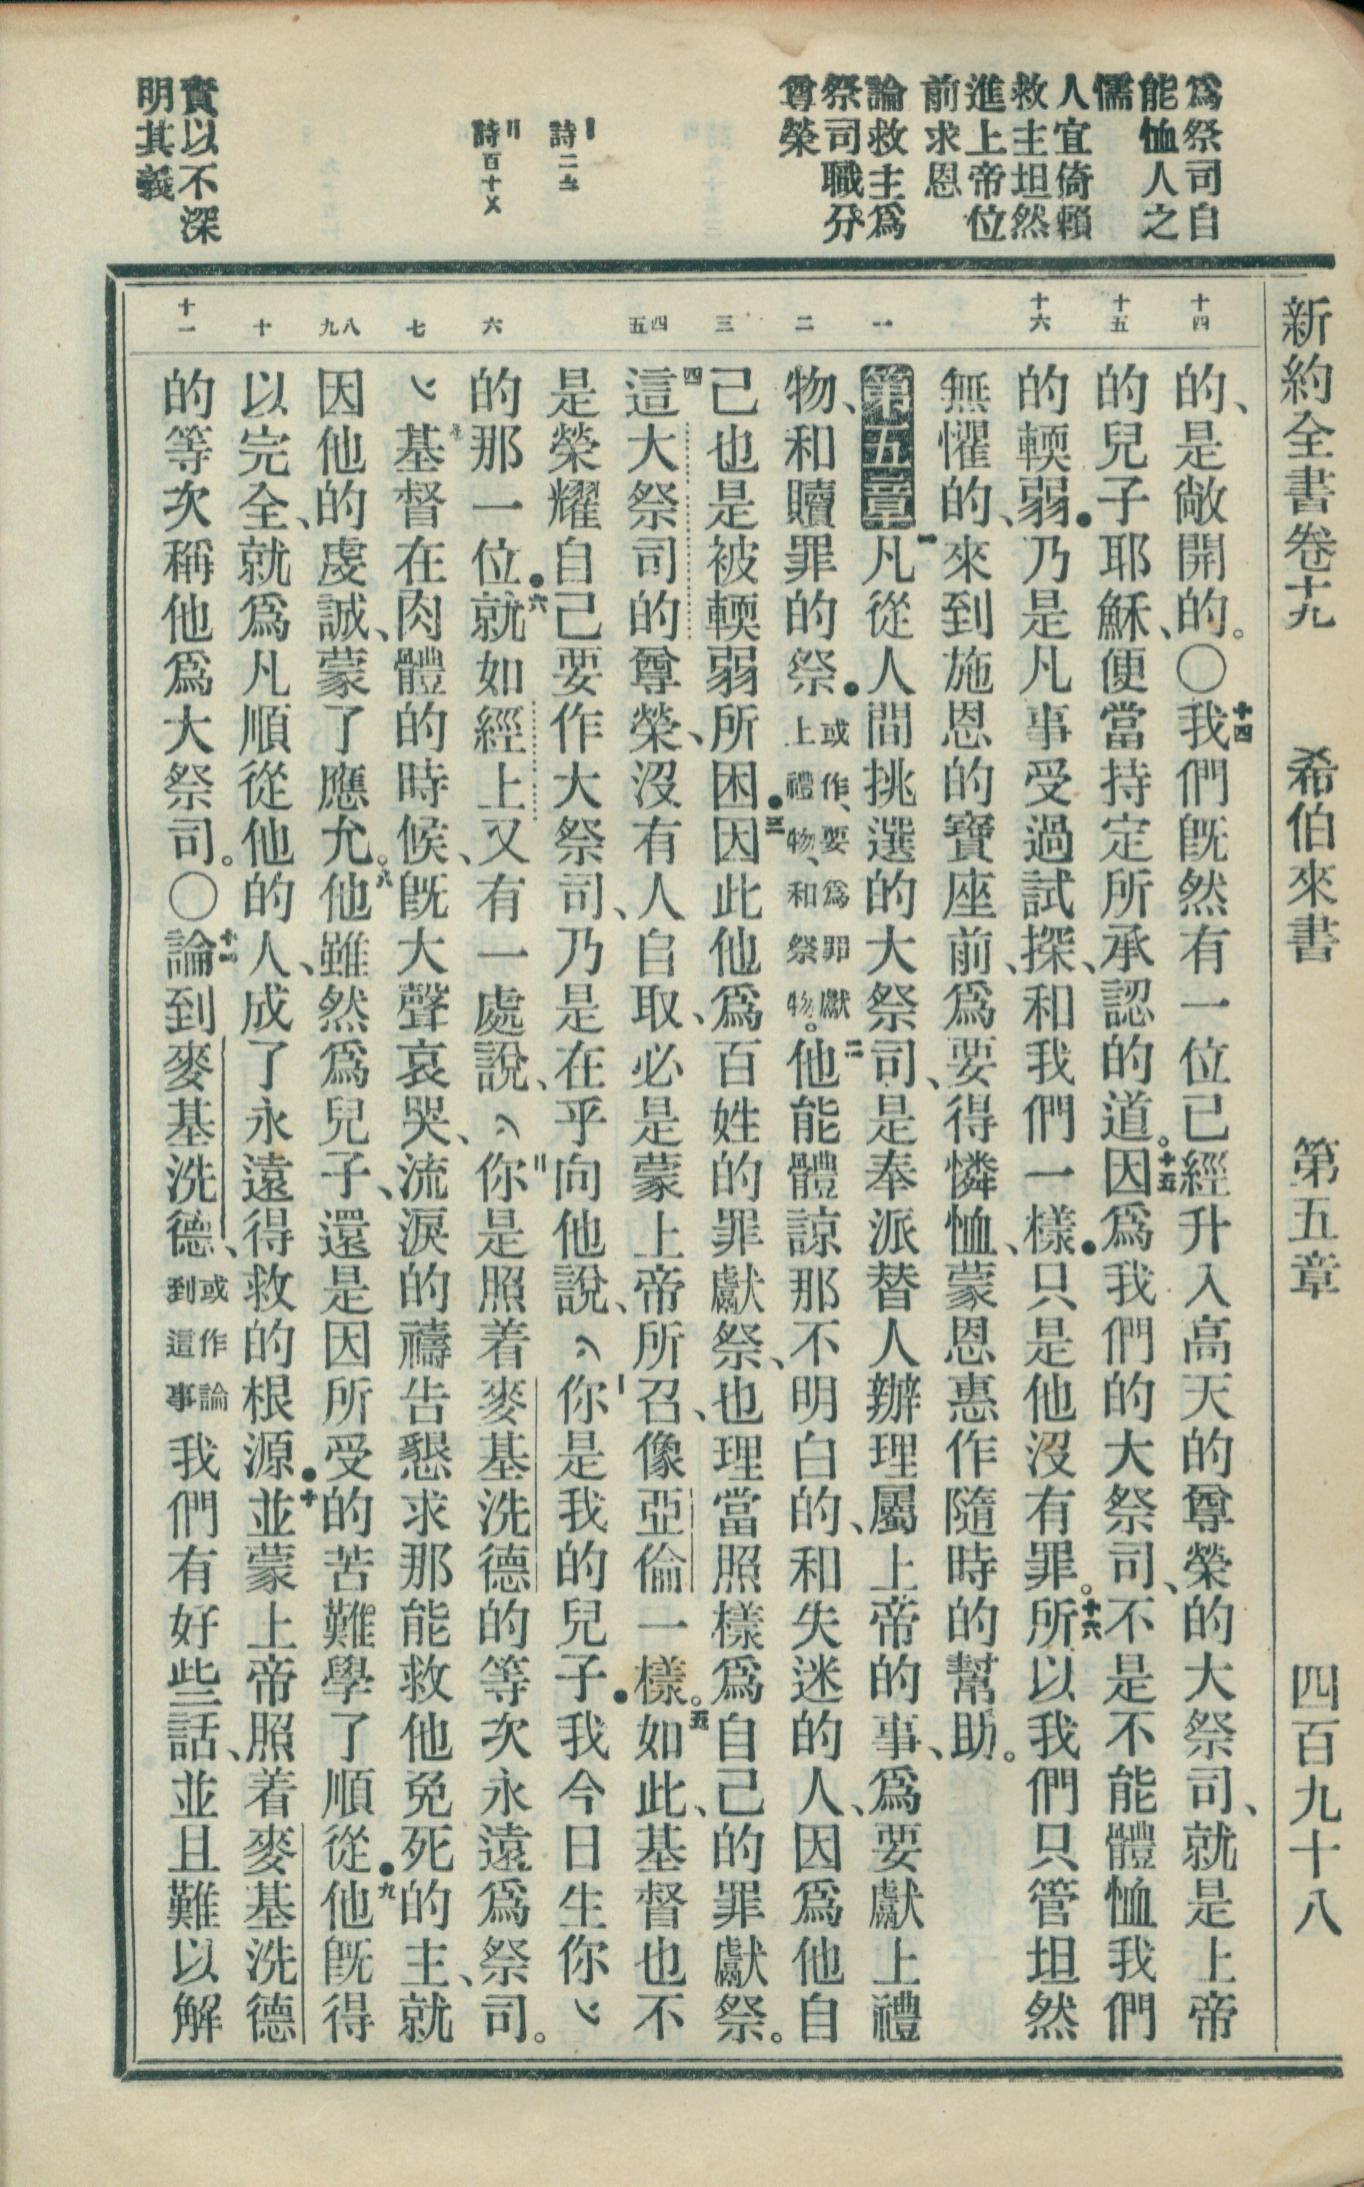 新約全書卷十九　希伯來書　第五章　四百九十八
爲祭司自
能恤人之
儒
人宜倚賴
救主坦然
進上帝位
前求恩
論救主爲
祭司職分
尊榮
詩二
詩百十
實以不深
明其義
十四
十五
十六
一
二
三
四
五
六
七
八
九
十
十一
的、是敞開的。〇十四我們既然有一位已經升入高天的尊榮的大祭司、就是上帝
的兒子耶穌、便當持定所承認的道。十五因爲我們的大祭司、不是不能體恤我們
的輭弱．乃是凡事受過試探、和我們一樣．只是他沒有罪。十六所以我們只管坦然
無懼的、來到施恩的寶座前、爲要得憐恤、蒙恩惠作隨時的幫助。
第五章一凡從人間挑選的大祭司、是奉派替人辦理屬上帝的事、爲要獻上禮
物、和贖罪的祭．或作、要爲罪獻上禮物、和祭物。二他能體諒那不明白的、和失迷的人、因爲他自
己也是被輭弱所困．三因此他爲百姓的罪獻祭、也理當照樣爲自己的罪獻祭。
四這大祭司的尊榮、沒有人自取、必是蒙上帝所召、像亞倫一樣。五如此、基督也不
是榮耀自己要作大祭司、乃是在乎向他說、〽你是我的兒子．我今日生你〽
的那一位．六就如經上又有一處說、〽你是照着麥基洗德的等次永遠爲祭司。
〽七基督在肉體的時候、既大聲哀哭、流淚的禱告懇求那能救他免死的主、就
因他的虔誠、蒙了應允。八他雖然爲兒子、還是因所受的苦難學了順從．九他既得
以完全、就爲凡順從他的人、成了永遠得救的根源．十並蒙上帝照着麥基洗德
的等次稱他爲大祭司。〇十一論到麥基洗德、或作論到這事我們有好些話、並且難以解